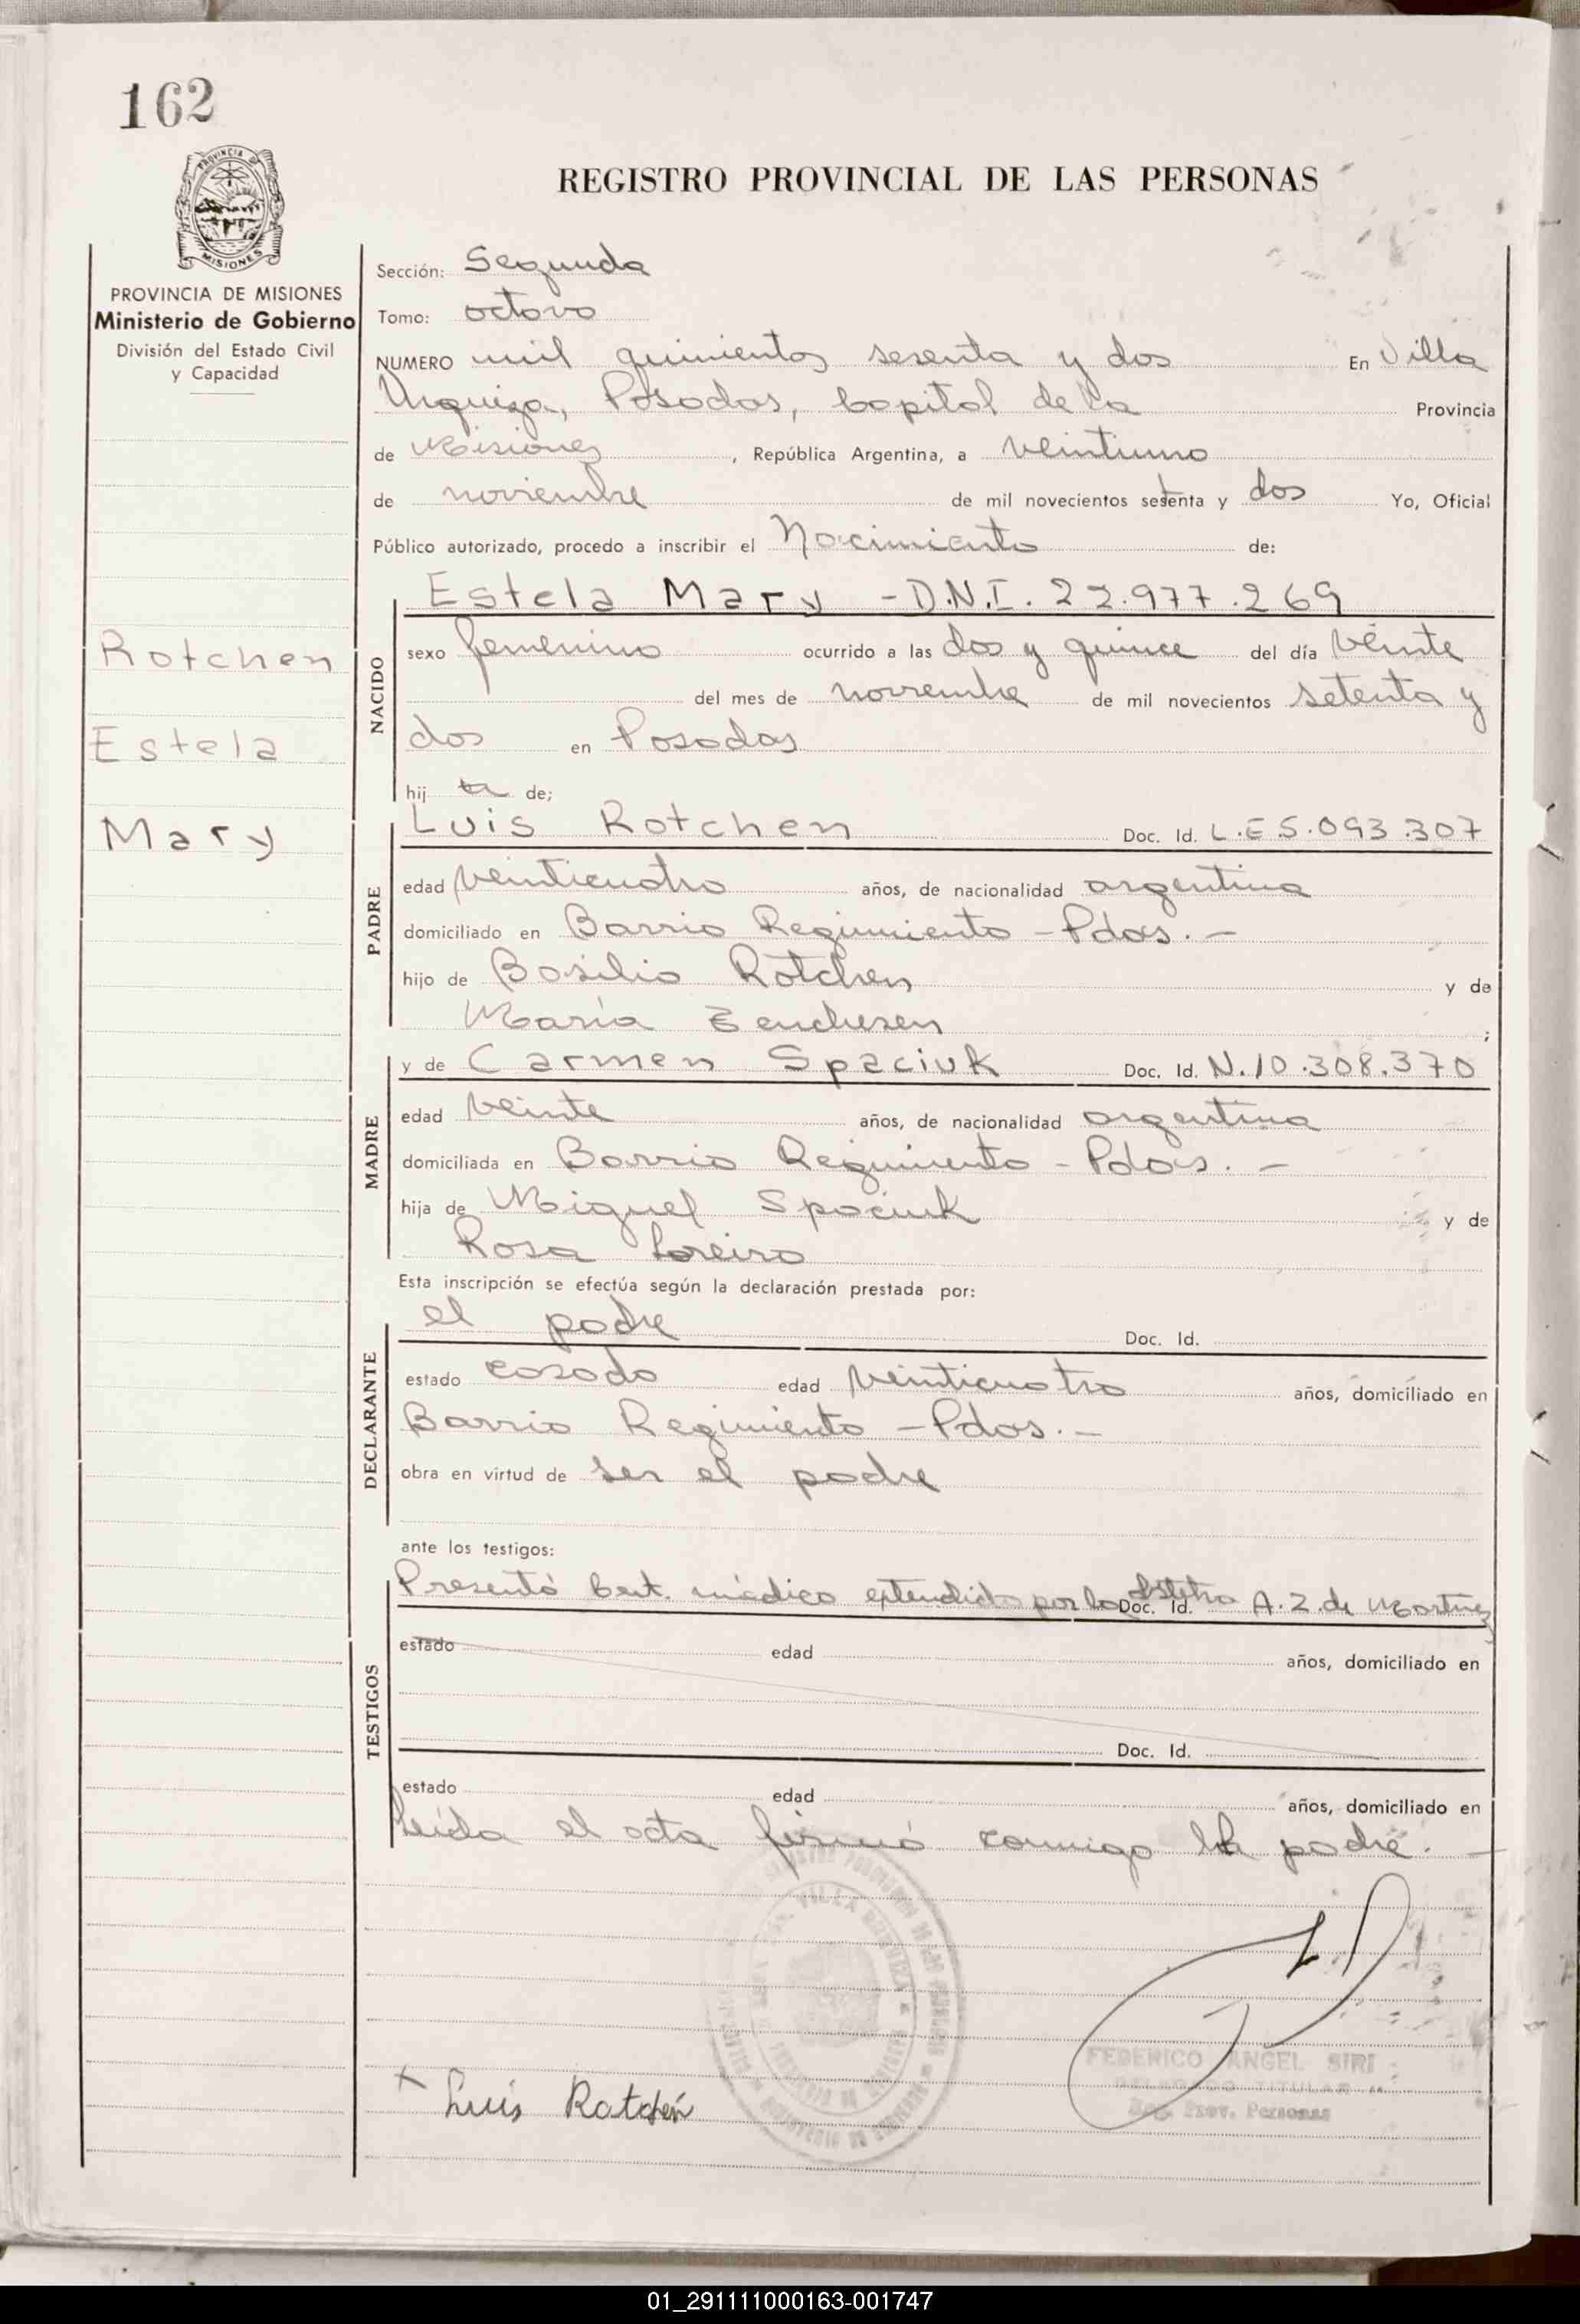 162
PROVINCIA DE
MISIONES
REGISTRO PROVINCIAL DE LAS PERSONAS
PROVINCIA DE MISIONES
Ministerio de Gobierno
División del Estado Civil
y Capacidad
Rotchen
Estela
Mary
Sección: Segunda
Tomo: octavo
NUMERO mil quinientos sesenta y dos En Villa
Urquiza, Posadas, Capital de la Provincia
de Misiones, República Argentina, a veintiuno
de noviembre de mil novecientos setenta y dos Yo, Oficial
Público autorizado, procedo a inscribir el Nacimiento de:
NACIDO
Estela Mary - D.N.I. 22.977.269
sexo femenino ocurrido a las dos y quince del día veinte
del mes de noviembre de mil novecientos setenta y
dos en Posadas
hij a de;
PADRE
Luis Rotchen Doc. Id. L.E 5.093.307
edad veinticuatro años, de nacionalidad argentina
domiciliado en Barrio Regimiento - Pdas. -
hijo de Basilio Rotchen y de
María ;
MADRE
y de Carmen Spaciuk Doc. Id. N. 10.308.370
edad veinte años, de nacionalidad argentina
domiciliada en Barrio Regimiento - Pdas. -
hija de Miguel Spaciuk y de
Rosa Loreiro
Esta inscripción se efectúa según la declaración prestada por:
DECLARANTE
el padre Doc. Id.
estado casado edad veinticuatro años, domiciliado en
Barrio Regimiento - Pdas. -
obra en virtud de ser el padre
ante los testigos:
TESTIGOS
Presentó Cert. médico extendido por la obstetra Doc. Id. A. Z. de Martinez
estado edad años, domiciliado en
Doc. Id.
estado edad años, domiciliado en
Leída el acta firmó conmigo el padre. -
x Luis Rotchen
FEDERICO ANGEL SIRI
DELEGADO TITULAR
Reg. Prov. Personas
01_291111000163-001747